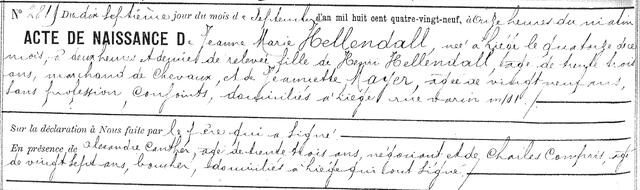 N° 2819 Du dix septième jour du mois de septembre d'an mil huit cent quatre-vingt-neuf, à onze heures du matin
ACTE DE NAISSANCE De Jeanne Marie Hellendall, née à Liége le quatorze de ce
mois, à deux heures et demie de relevée, fille de Henri Hellendall, âgé de trente trois
ans, marchand de chevaux, et de Jeannette Mayer, âgée de vingt neuf ans,
sans profession, conjoints, domiciliés à Liége, rue Varin
Sur la déclaration à Nous faite par le père qui a signé
En présence de Alexandre , âgé de trente trois ans, négociant et de Charles , âgé
de vingt sept ans, boucher, domiciliés à Liége qui ont signé.